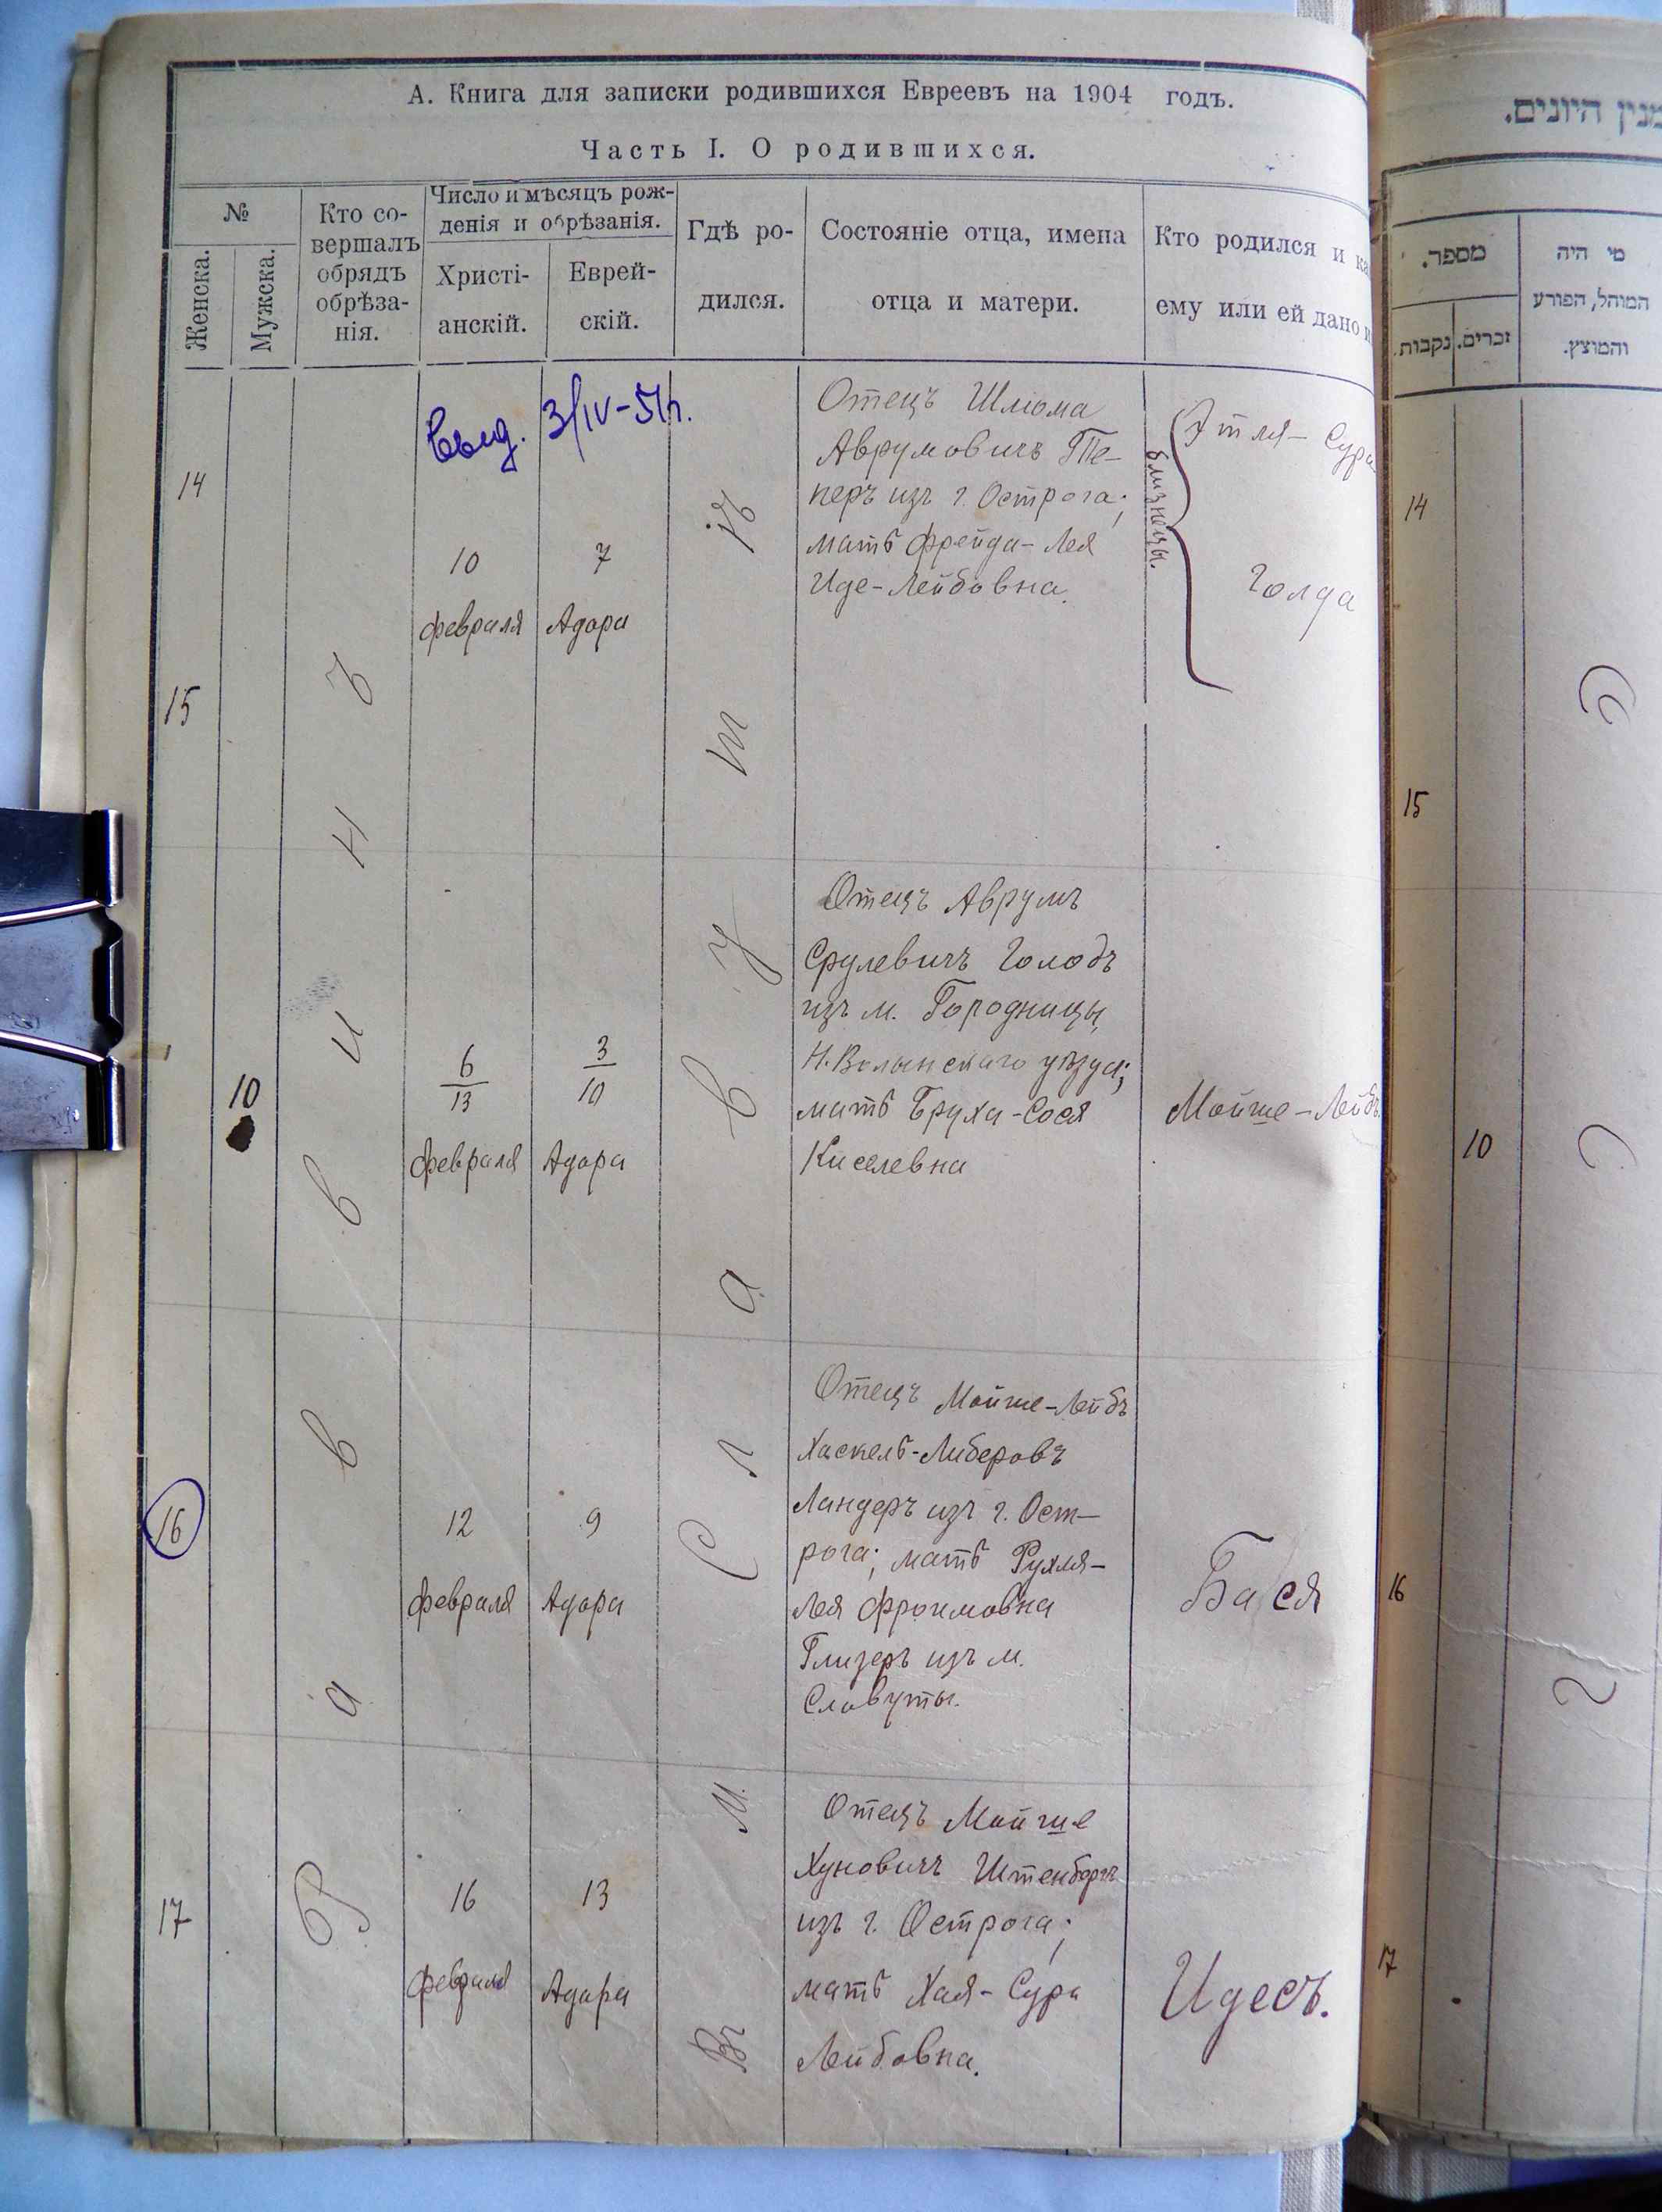 А. Книга для записки родившихся Евреевъ на 1904 годъ.
Часть I. О родившихся.
№
Женска.
Мужска.
Кто со-
вершалъ
обрядъ
обрѣза-
нія.
Число и мѣсяцъ рож-
денія и обрѣзанія.
Христі-
анскій.
Еврей-
скій.
Гдѣ ро-
дился.
Состояніе отца, имена
отца и матери.
Кто родился и ка
ему или ей дано и
Раввинъ
Въ м. Славутѣ
выд. 3/IV-51г.
14
15
10
февраля
7
Адара
Отецъ Шлiома
Аврумовичъ Те-
перъ изъ г. Острога;
мать Фрейда-Лея
Иде-Лейбовна.
близнецы.
Этля-Сура
Голда
10
6
13
февраля
3
10
Адара
Отецъ Аврумъ
Срулевичъ Голодъ
изъ м. Городницы,
Н.Волынскаго уѣзда;
мать Бруха-Сося
Киселевна
Мойше-Лейбъ
16
12
февраля
9
Адара
Отецъ Мойше-Лейбъ
Хаскель-Либеровъ
Ландеръ изъ г. Ост-
рога; мать Рухля-
Лея Фроимовна
Глизеръ изъ м.
Славуты.
Бася
17
16
февраля
13
Адара
Отецъ Мойше
Хуновичъ Штенбергъ
изъ г. Острога;
мать Хая-Сура
Лейбовна.
Идесъ.
מנין היונים.
מספר.
נקבות.
זכרים.
מי היה
המוהל, הפורע
והמוצץ.
14
15
10
16
17